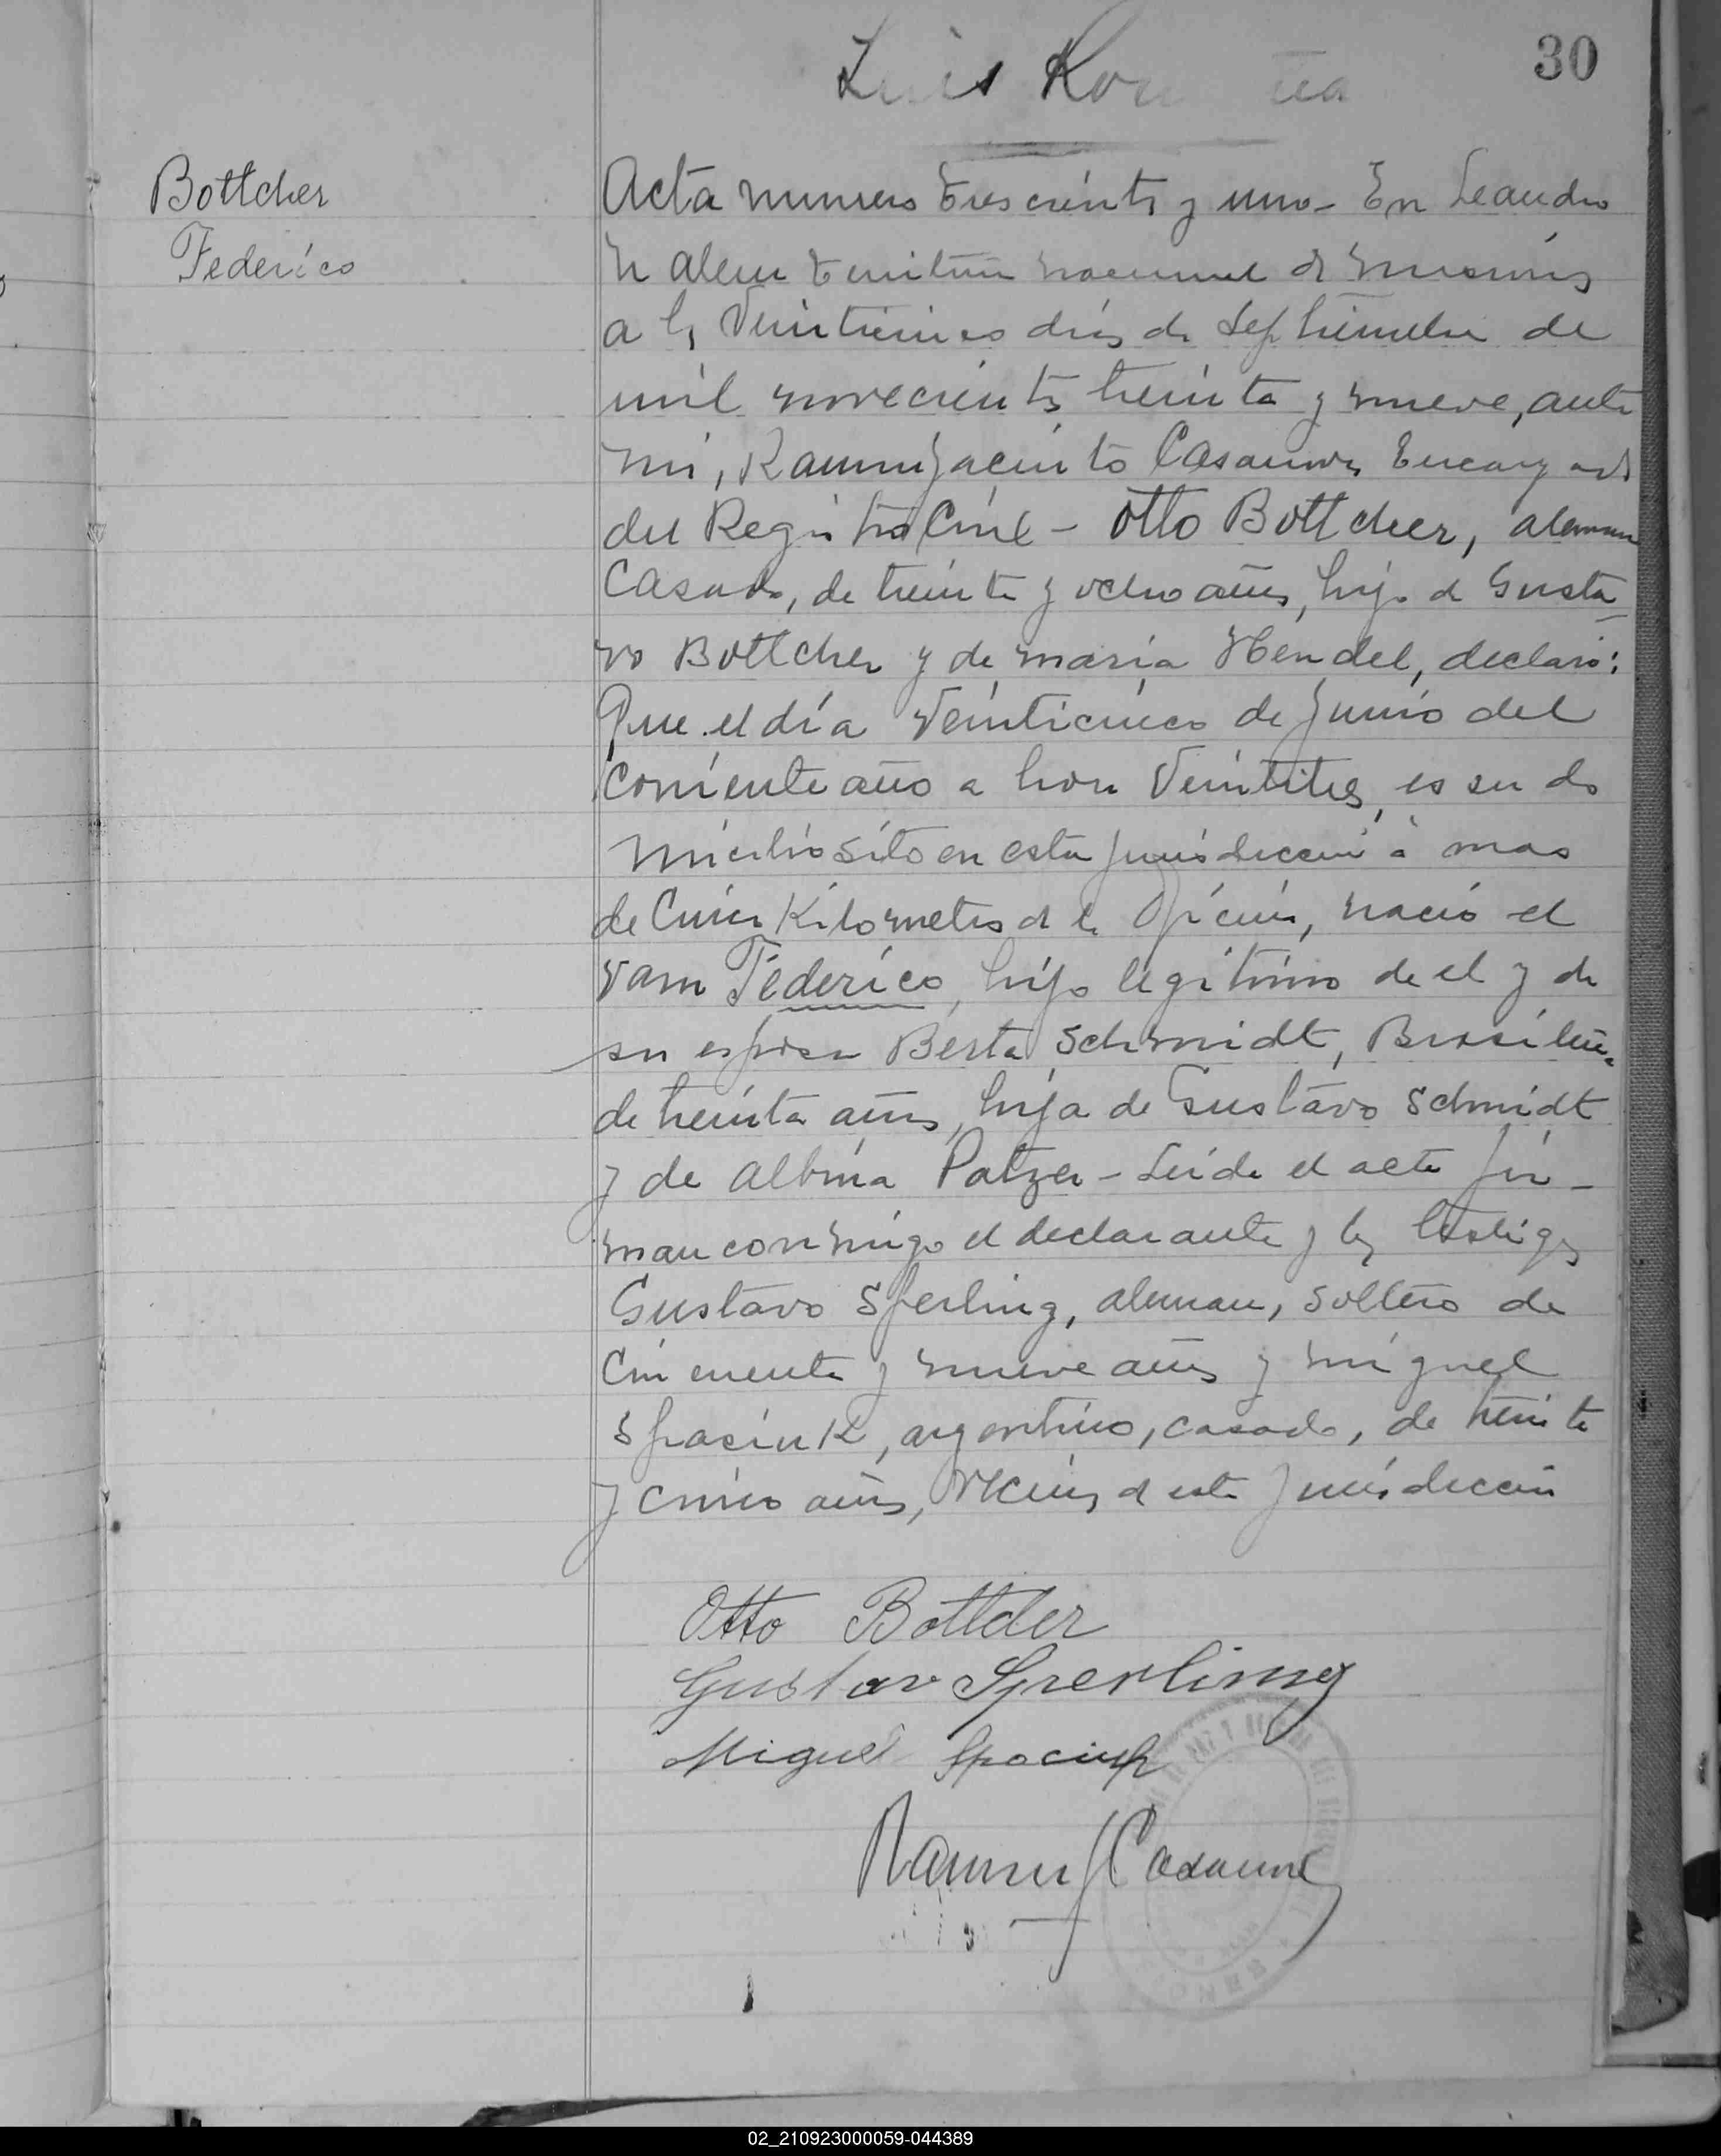 30
Luis
Bottcher
Federico
Acta numero trescientos y uno - En Leandro
N Alem territorio nacional de Misiones
a los veinticinco dias de Septiembre de
mil novecientos treinta y nueve, ante
mi, Ramon Jacinto Casanova Encargado
del Registro Civil - Otto Bottcher, aleman
casado, de treinta y ocho años, hijo de Gusta-
vo Bottcher y de Maria Hendel, declaró:
Que el día veinticinco de Junio del
corriente año a hora veintitres, es su do
micilio sito en esta jurisdiccion a mas
de cinco Kilometros de la Oficina, nació el
varon Federico, hijo legitimo de el y de
su esposa Berta Schmidt, Brasileña
de treinta años, hija de Gustavo Schmidt
y de Albina Patzer - Leida el acta fir-
man conmigo el declarante y los testigos
Gustavo Sperling, aleman, soltero de
cincuenta y nueve años y Miguel
Spaciuk, argentino, casado, de treinta
y cinco años, vecinos de esta Jurisdiccion
Otto Bottcher
Gustav Sperling
Miguel Spaciuk
Ramon J Casanova
02_210923000059-044389